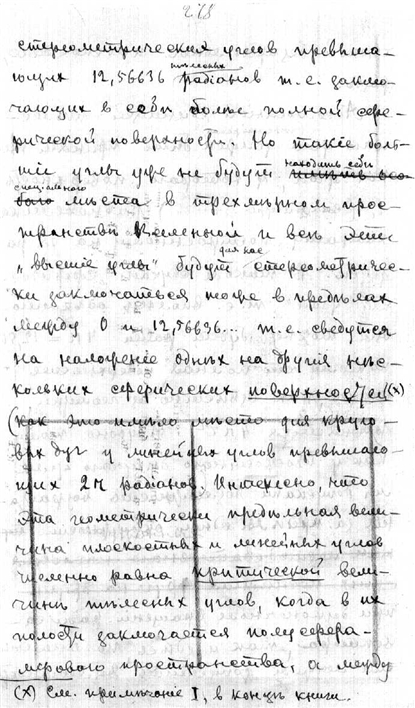 268
стереометрическия углов превыша-
ющих 12,56636 телесных радіанов т.е. заклю-
чающих в себѣ более полной сфе-
рической поверхности. Но такіе боль-
шіе углы уже не будут находить себѣ
спеціального мѣста в трехмѣрном прос-
транствѣ Вселенной и всѣ эти
„высшіе углы" будут для нас стереометричес-
ки заключаться тоже в предѣлах
между 0 и 12,56636... т.е. сведутся
на наложеніе одних на другія нѣс-
кольких сферических поверхностей (х)
(как это имѣло мѣсто для круго-
вых дуг у линейных углов превышаю-
щих 2π радіанов. Интересно, что
эта геометрически предѣльная вели-
чина плоскостных и линейных углов
численно равна критической вели-
чинѣ тѣлесных углов, когда в их
полости заключается полусфера
мірового пространства, а между
(х) См. примѣчаніе I, в концѣ книги.